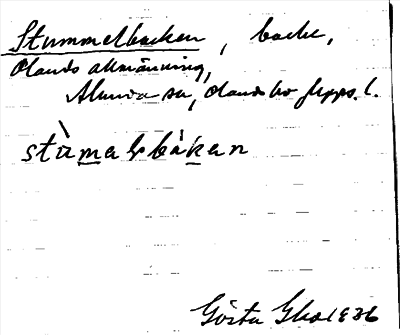 Stummelbacken, backe,
Olands allmänning,
Alunda sn, Olands hd Upps. l.
stùmelbàken
Gösta 1936